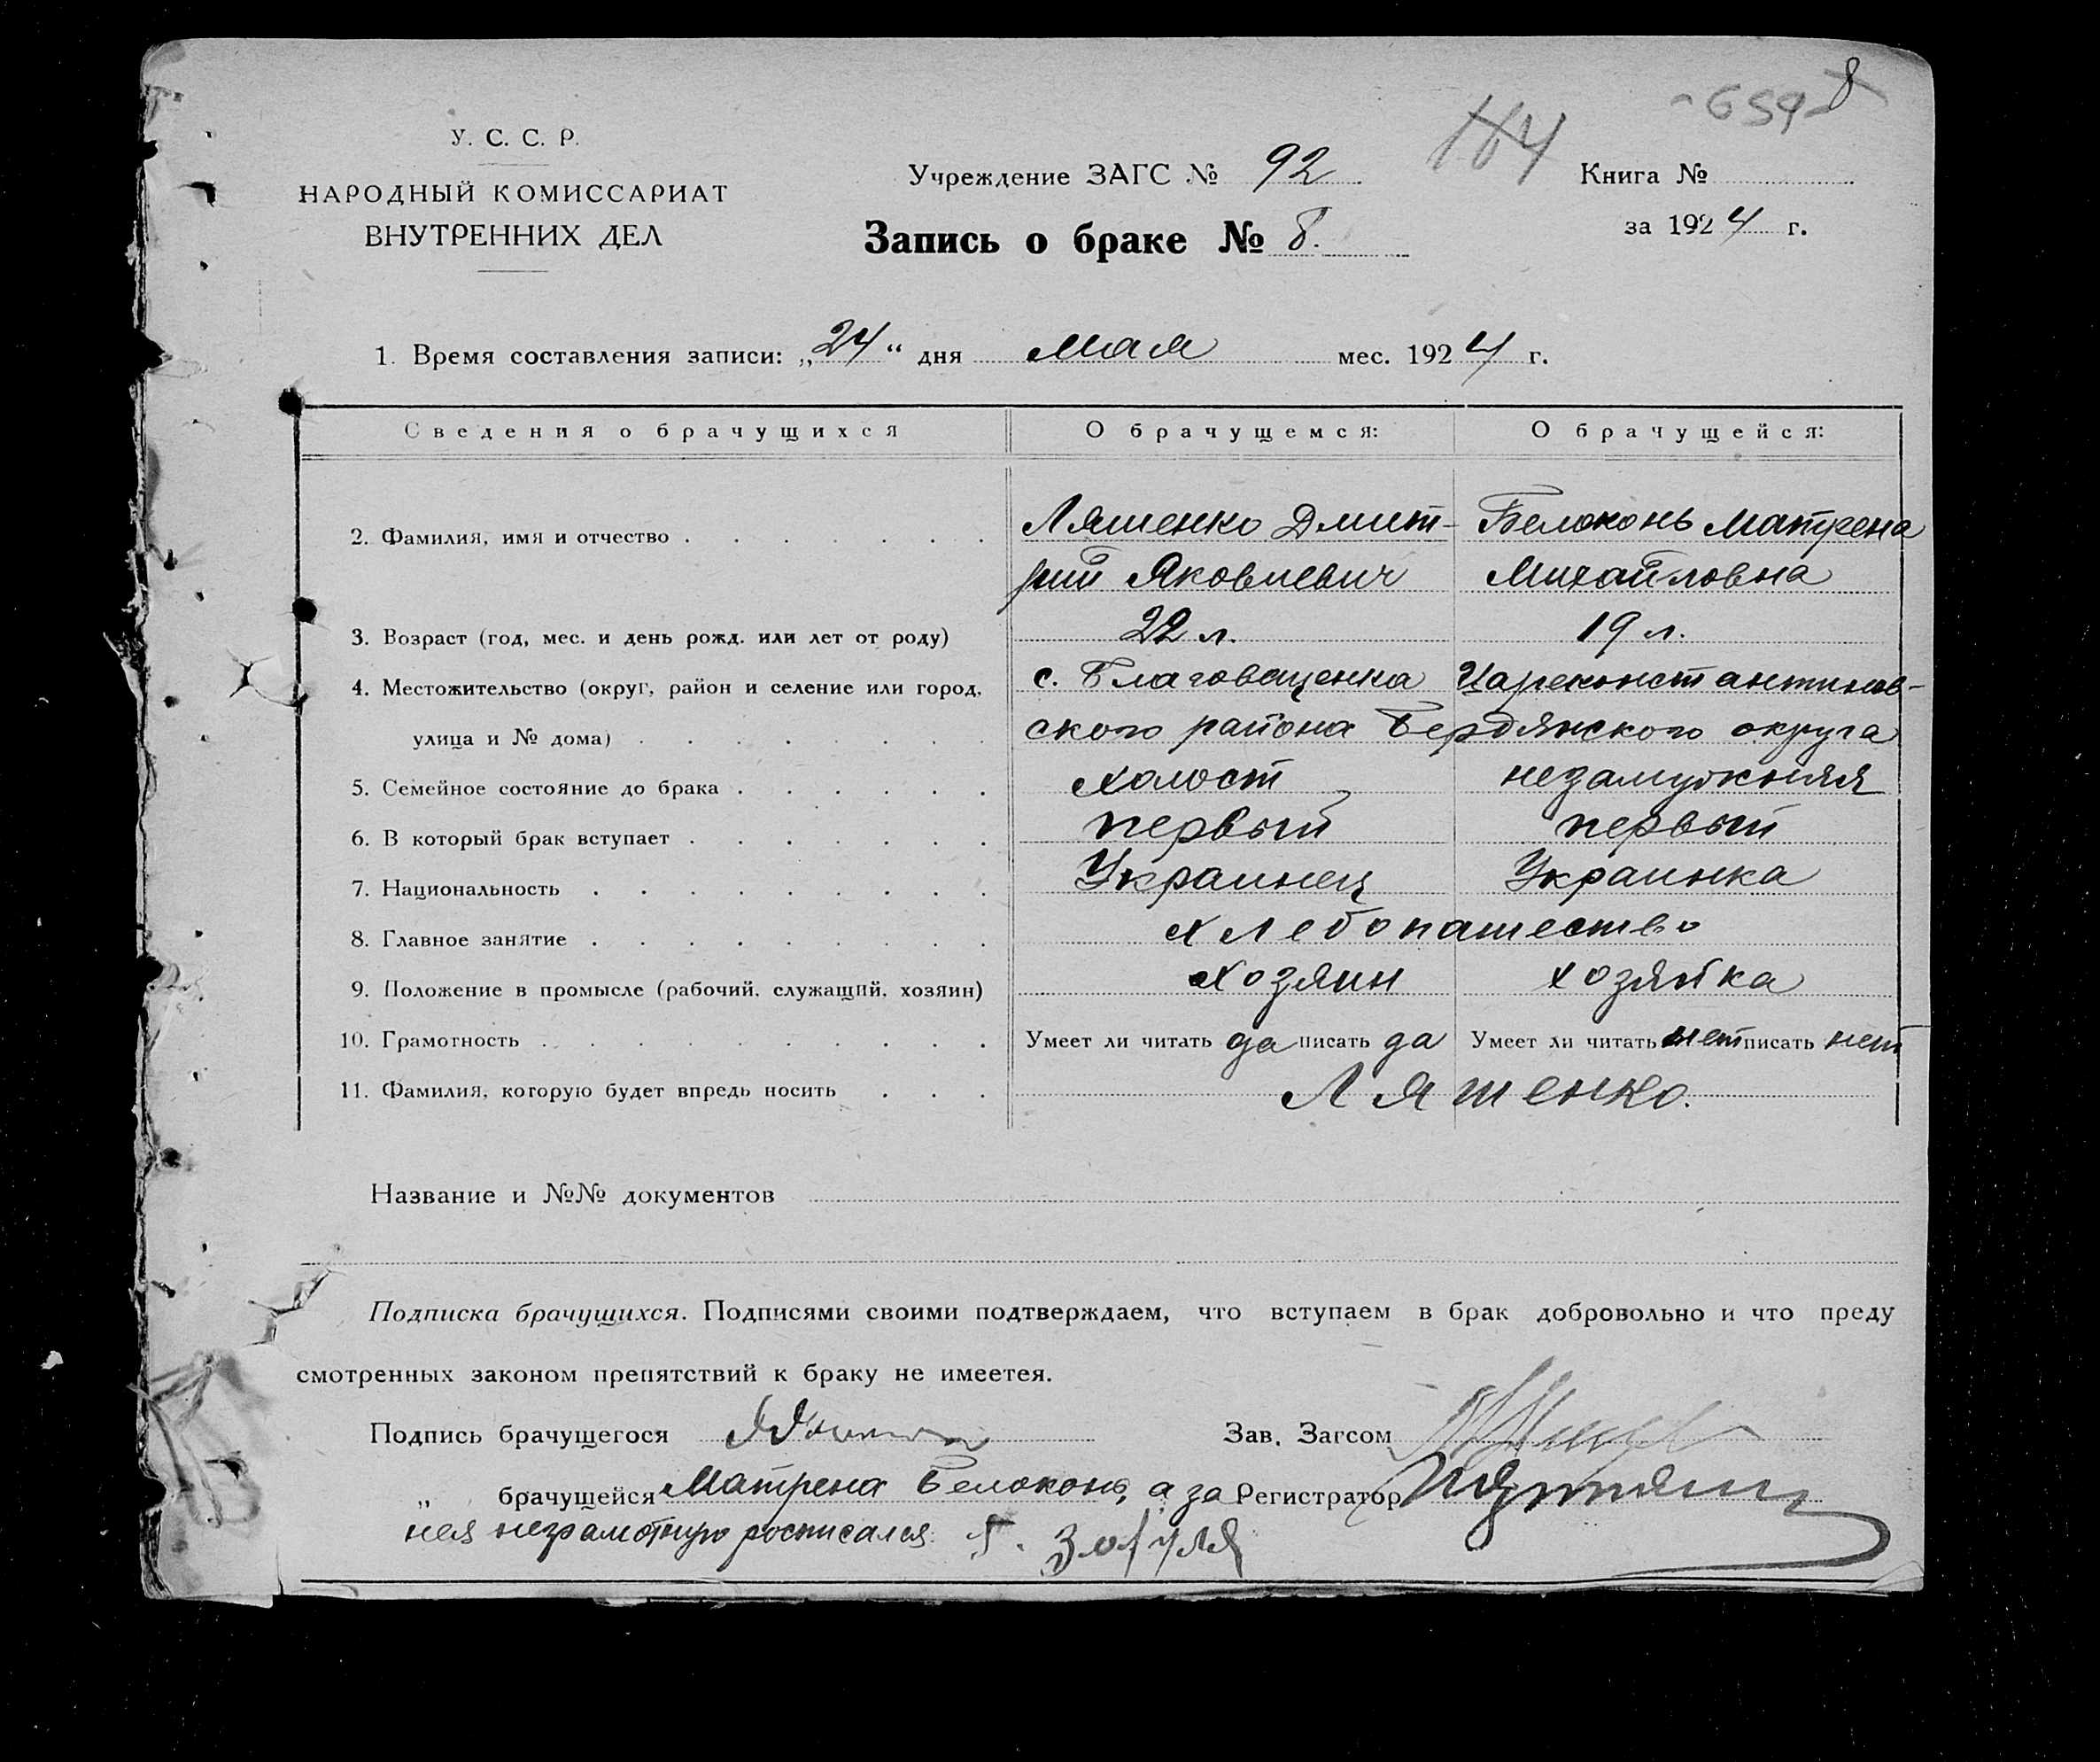 8
-659-
184
У. С. С. Р.
НАРОДНЫЙ КОМИССАРИАТ
ВНУТРЕННИХ ДЕЛ
Учреждение ЗАГС № 92
Книга №
за 1924 г.
Запись о браке № 8.
1. Время составления записи: „24“ дня мая мес. 1924 г.
Сведения о брачущихся О брачущемся: О брачущейся:
2. Фамилия, имя и отчество Ляшенко Дмит- Белоконь Матрена
рий Яковлевич Михайловна
3. Возраст (год, мес. и день рожд. или лет от роду) 22 л. 19 л.
4. Местожительство (округ, район и селение или город, с. Благовещенка Цареконстантинов-
улица и № дома) ского района Бердянского округа
5. Семейное состояние до брака холост незамужняя
6. В который брак вступает первый первый
7. Национальность Украинец Украинка
8. Главное занятие хлебопашество
9. Положение в промысле (рабочий, служащий, хозяин) хозяин хозяйка
10. Грамотность Умеет ли читать да писать да Умеет ли читать нет писать нет
11. Фамилия, которую будет впредь носить Ляшенко.
Название и №№ документов
Подписка брачущихся. Подписями своими подтверждаем, что вступаем в брак добровольно и что преду
смотренных законом препятствий к браку не имеетея.
Подпись брачущегося Зав. Загсом
„ брачущейся Матрена Белоконь, а за Регистратор
нея неграмотную росписался